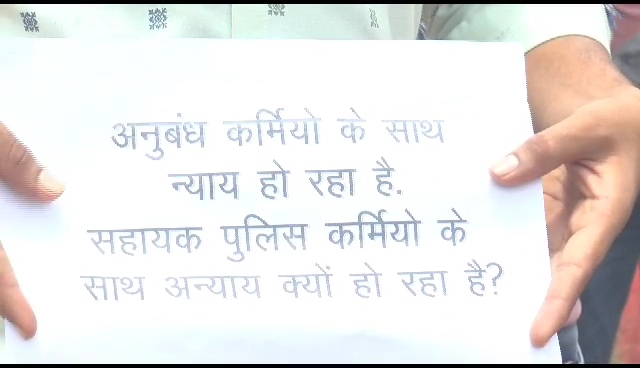 अनुबंध कर्मियो के साथ
न्याय हो रहा है.
सहायक पुलिस कर्मियो के
साथ अन्याय क्यों हो रहा है?